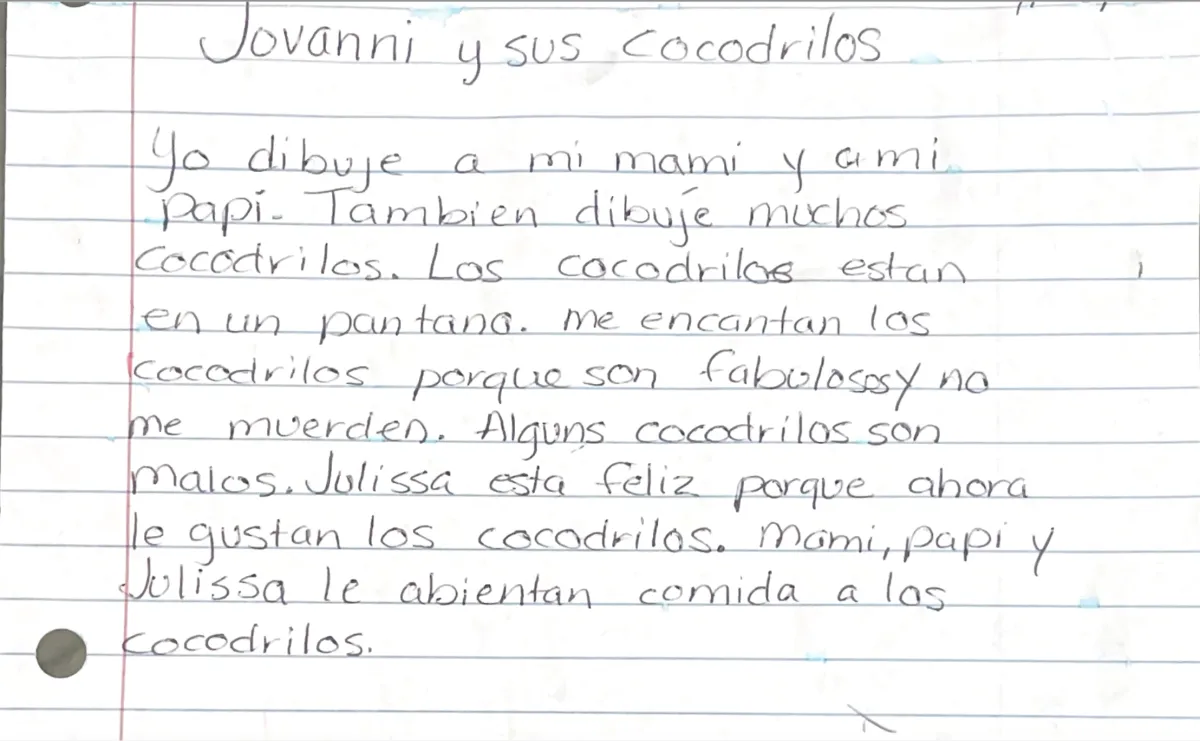 Jovanni y sus cocodrilos
Yo dibuje a mi mami y a mi
papi. Tambien dibuje muchos
cocodrilos. Los cocodrilos estan
en un pantano. me encantan los
cocodrilos porque son fabulosos y no
me muerden. Alguns cocodrilos son
malos. Julissa esta feliz porque ahora
le gustan los cocodrilos. Mami, papi y
Julissa le abientan comida a los
cocodrilos.